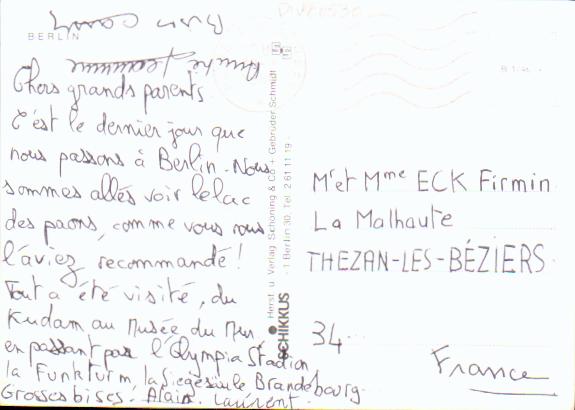 BERLIN
Chers grands parents
C'est le dernier jour que
nous passons à Berlin. Nous
sommes allés voir le lac
des paons, comme vous nous
l'aviez recommandé!
Tout a été visité, du
Kudam au Musée du Mur
en passant par l'Olympia Stadion
la Funkturm, la Siegessäule Brandebourg.
Grosses bises. Alain. Laurent.
Amitié Jeannine
SCHIKKUS
Herst. u. Verlag Schöning & Co + Gebrüder Schmidt
1 Berlin 30. Tel. 2 61 11 19
Mr et Mme ECK Firmin
La Malhaute
THEZAN-LES-BÉZIERS
34
France